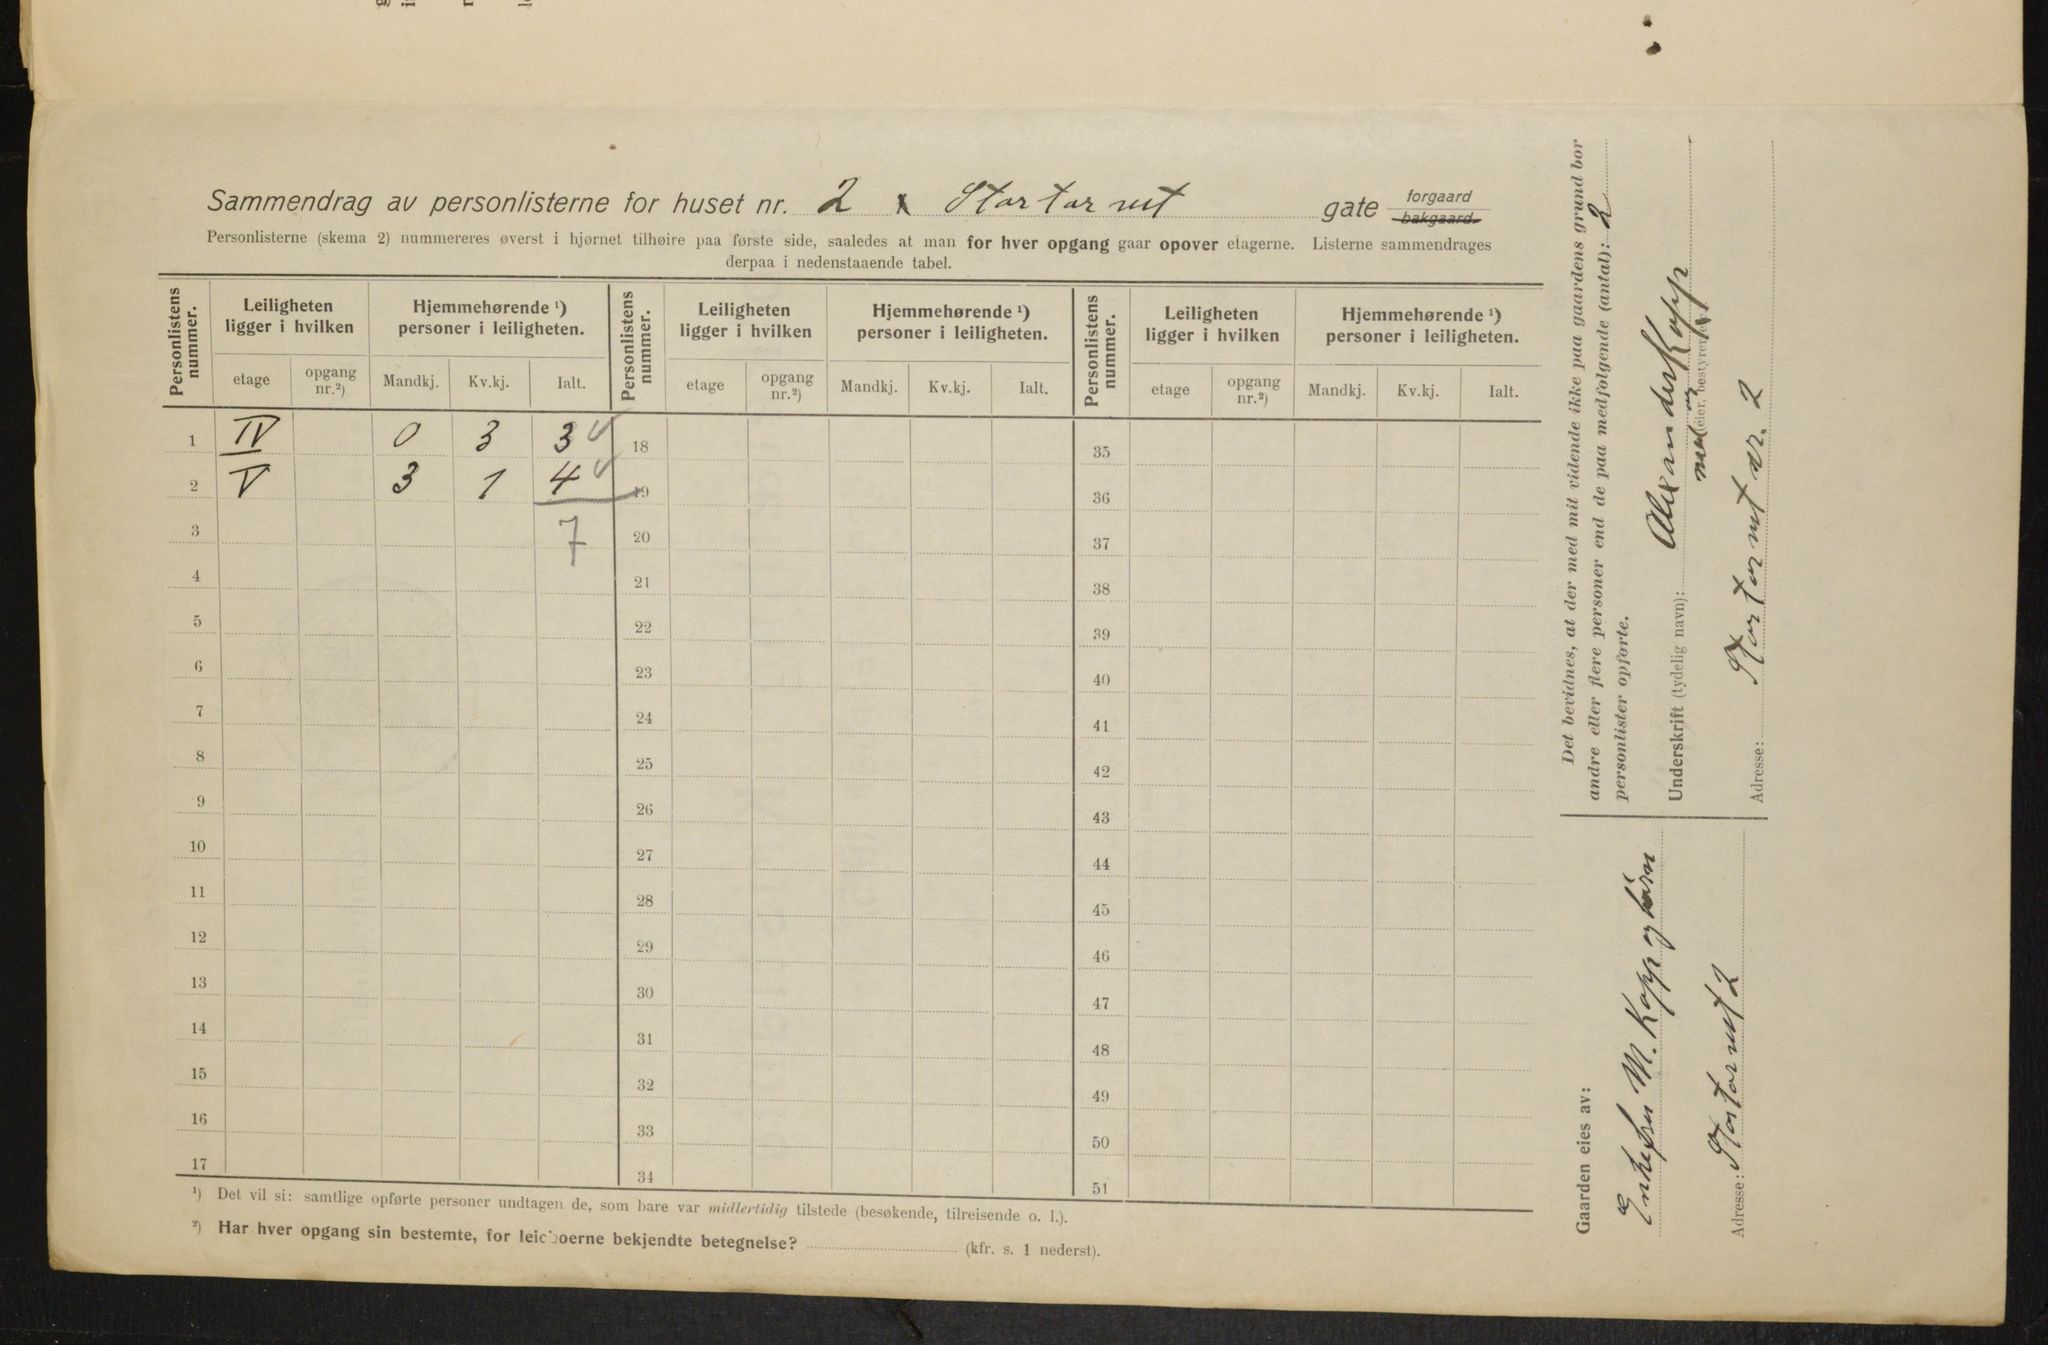 Sammendrag av personlisterne for huset nr. 2 x Stortorvet gate forgaard bakgaard.
Personlisterne (skema 2) nummereres øverst i hjørnet tilhøire paa første side, saaledes at man for hver opgang gaar opover etagerne. Listerne sammendrages
derpaa i nedenstaaende tabel.
Personlistens nummer. Leiligheten ligger i hvilken Hjemmehørende ¹) personer i leiligheten. Personlistens nummer. Leiligheten ligger i hvilken Hjemmehørende ¹) personer i leiligheten. Personlistens nummer. Leiligheten ligger i hvilken Hjemmehørende ¹) personer i leiligheten.
etage opgang nr.²) Mandkj. Kv.kj. Ialt. etage opgang nr.²) Mandkj. Kv.kj. Ialt. etage opgang nr.²) Mandkj. Kv.kj. Ialt.
1 IV 0 3 3 18 35
2 V 3 1 4 19 36
3 7 20 37
4 21 38
5 22 39
6 23 40
7 24 41
8 25 42
9 26 43
10 27 44
11 28 45
12 29 46
13 30 47
14 31 48
15 32 49
16 33 50
17 34 51
¹) Det vil si: samtlige opførte personer undtagen de, som bare var midlertidig tilstede (besøkende, tilreisende o. l.).
²) Har hver opgang sin bestemte, for leieboerne bekjendte betegnelse? (kfr. s. 1 nederst).
Det bevidnes, at der med mit vidende ikke paa gaardens grund bor
andre eller flere personer end de paa medfølgende (antal): 2
personlister opførte.
Underskrift (tydelig navn): Alexander Kopp
(eier, bestyrer
Adresse: Stortorvet nr. 2
Gaarden eies av:
Enkefru M. Kopp og børn
Adresse: Stortorvet 2